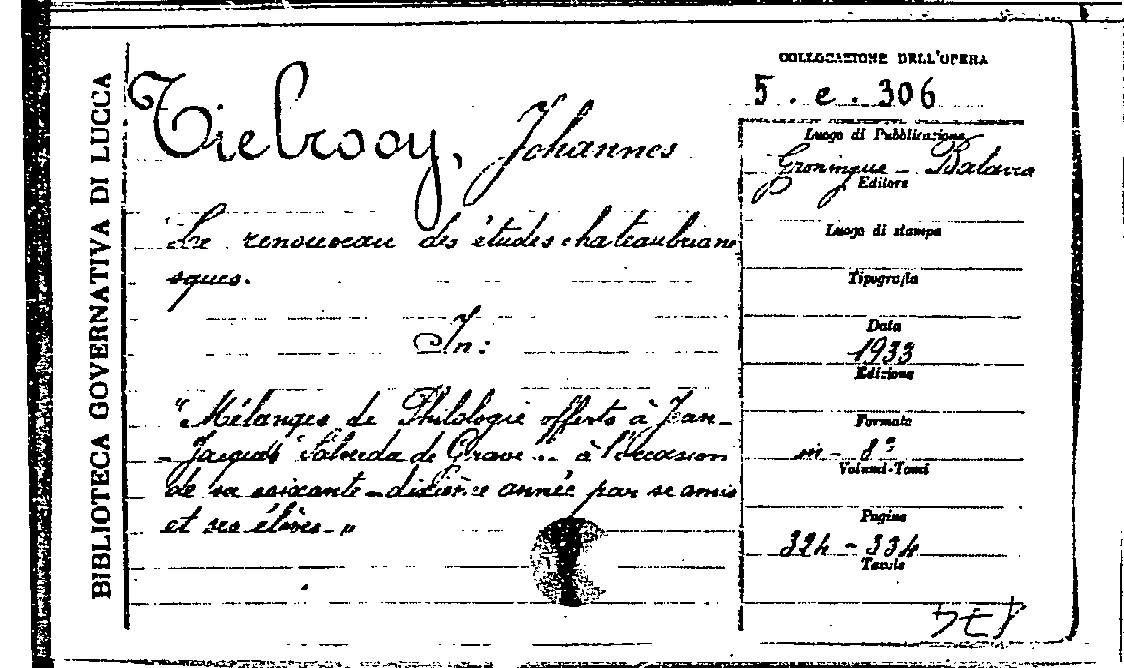 BIBLIOTECA GOVERNATIVA DI LUCCA
Tielrooy, Johannes
Le renouveau des études chateaubriane
sques.
In:
"Mélanges de Philologie offerts à Jean-
-Jacques Salverda de Grave .. à l'occasion
de sa soixante-dixième année par se amis
et ses élèves-"
COLLOCAZIONE DELL'OPERA
5. e. 306
Luogo di Pubblicazione
Groningue - Batavia
Editore
Luogo di stampa
Tipografia
Data
1933
Edizione
Formato
in-8°
Volumi-Tomi
Pagine
324-334
Tavole